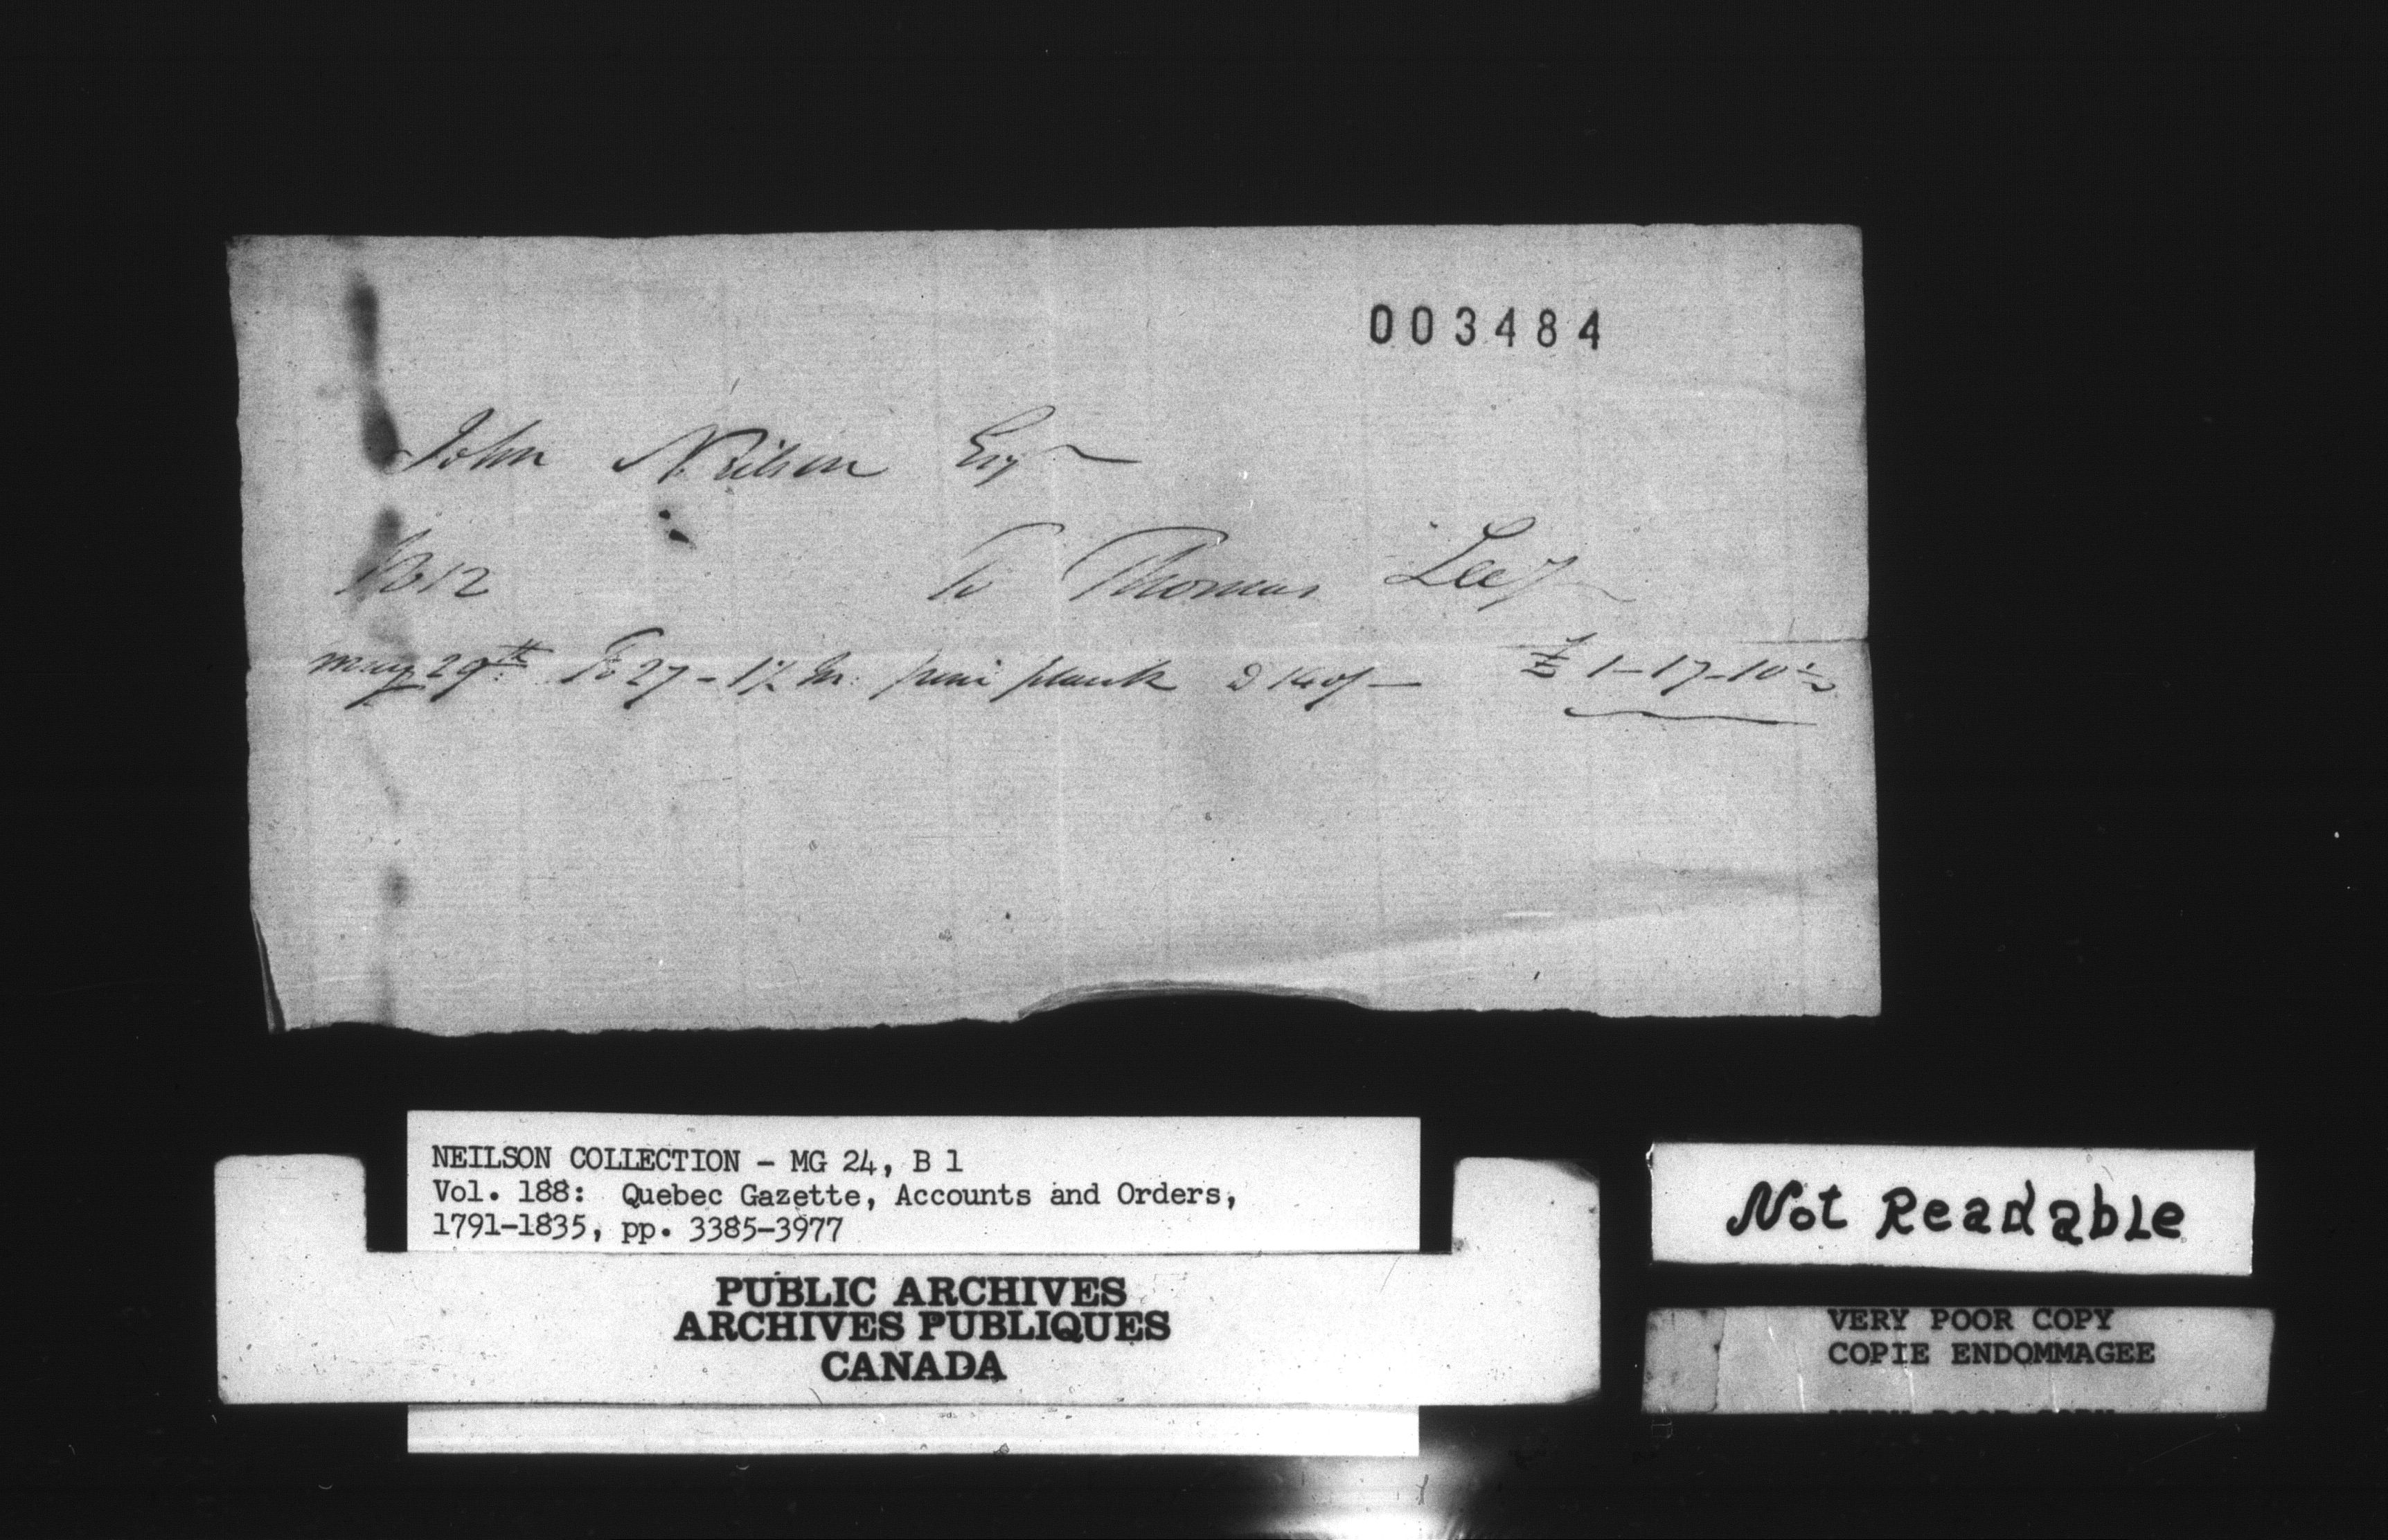 003484
John Neilson Esqr
1812 To Thomas Lee
May 29th To 27 - 1½ In: pine plank @ 140/- £ 1-17-10½
NEILSON COLLECTION - MG 24, B 1
Vol. 188: Quebec Gazette, Accounts and Orders,
1791-1835, pp. 3385-3977
PUBLIC ARCHIVES
ARCHIVES PUBLIQUES
CANADA
Not Readable
VERY POOR COPY
COPIE ENDOMMAGEE